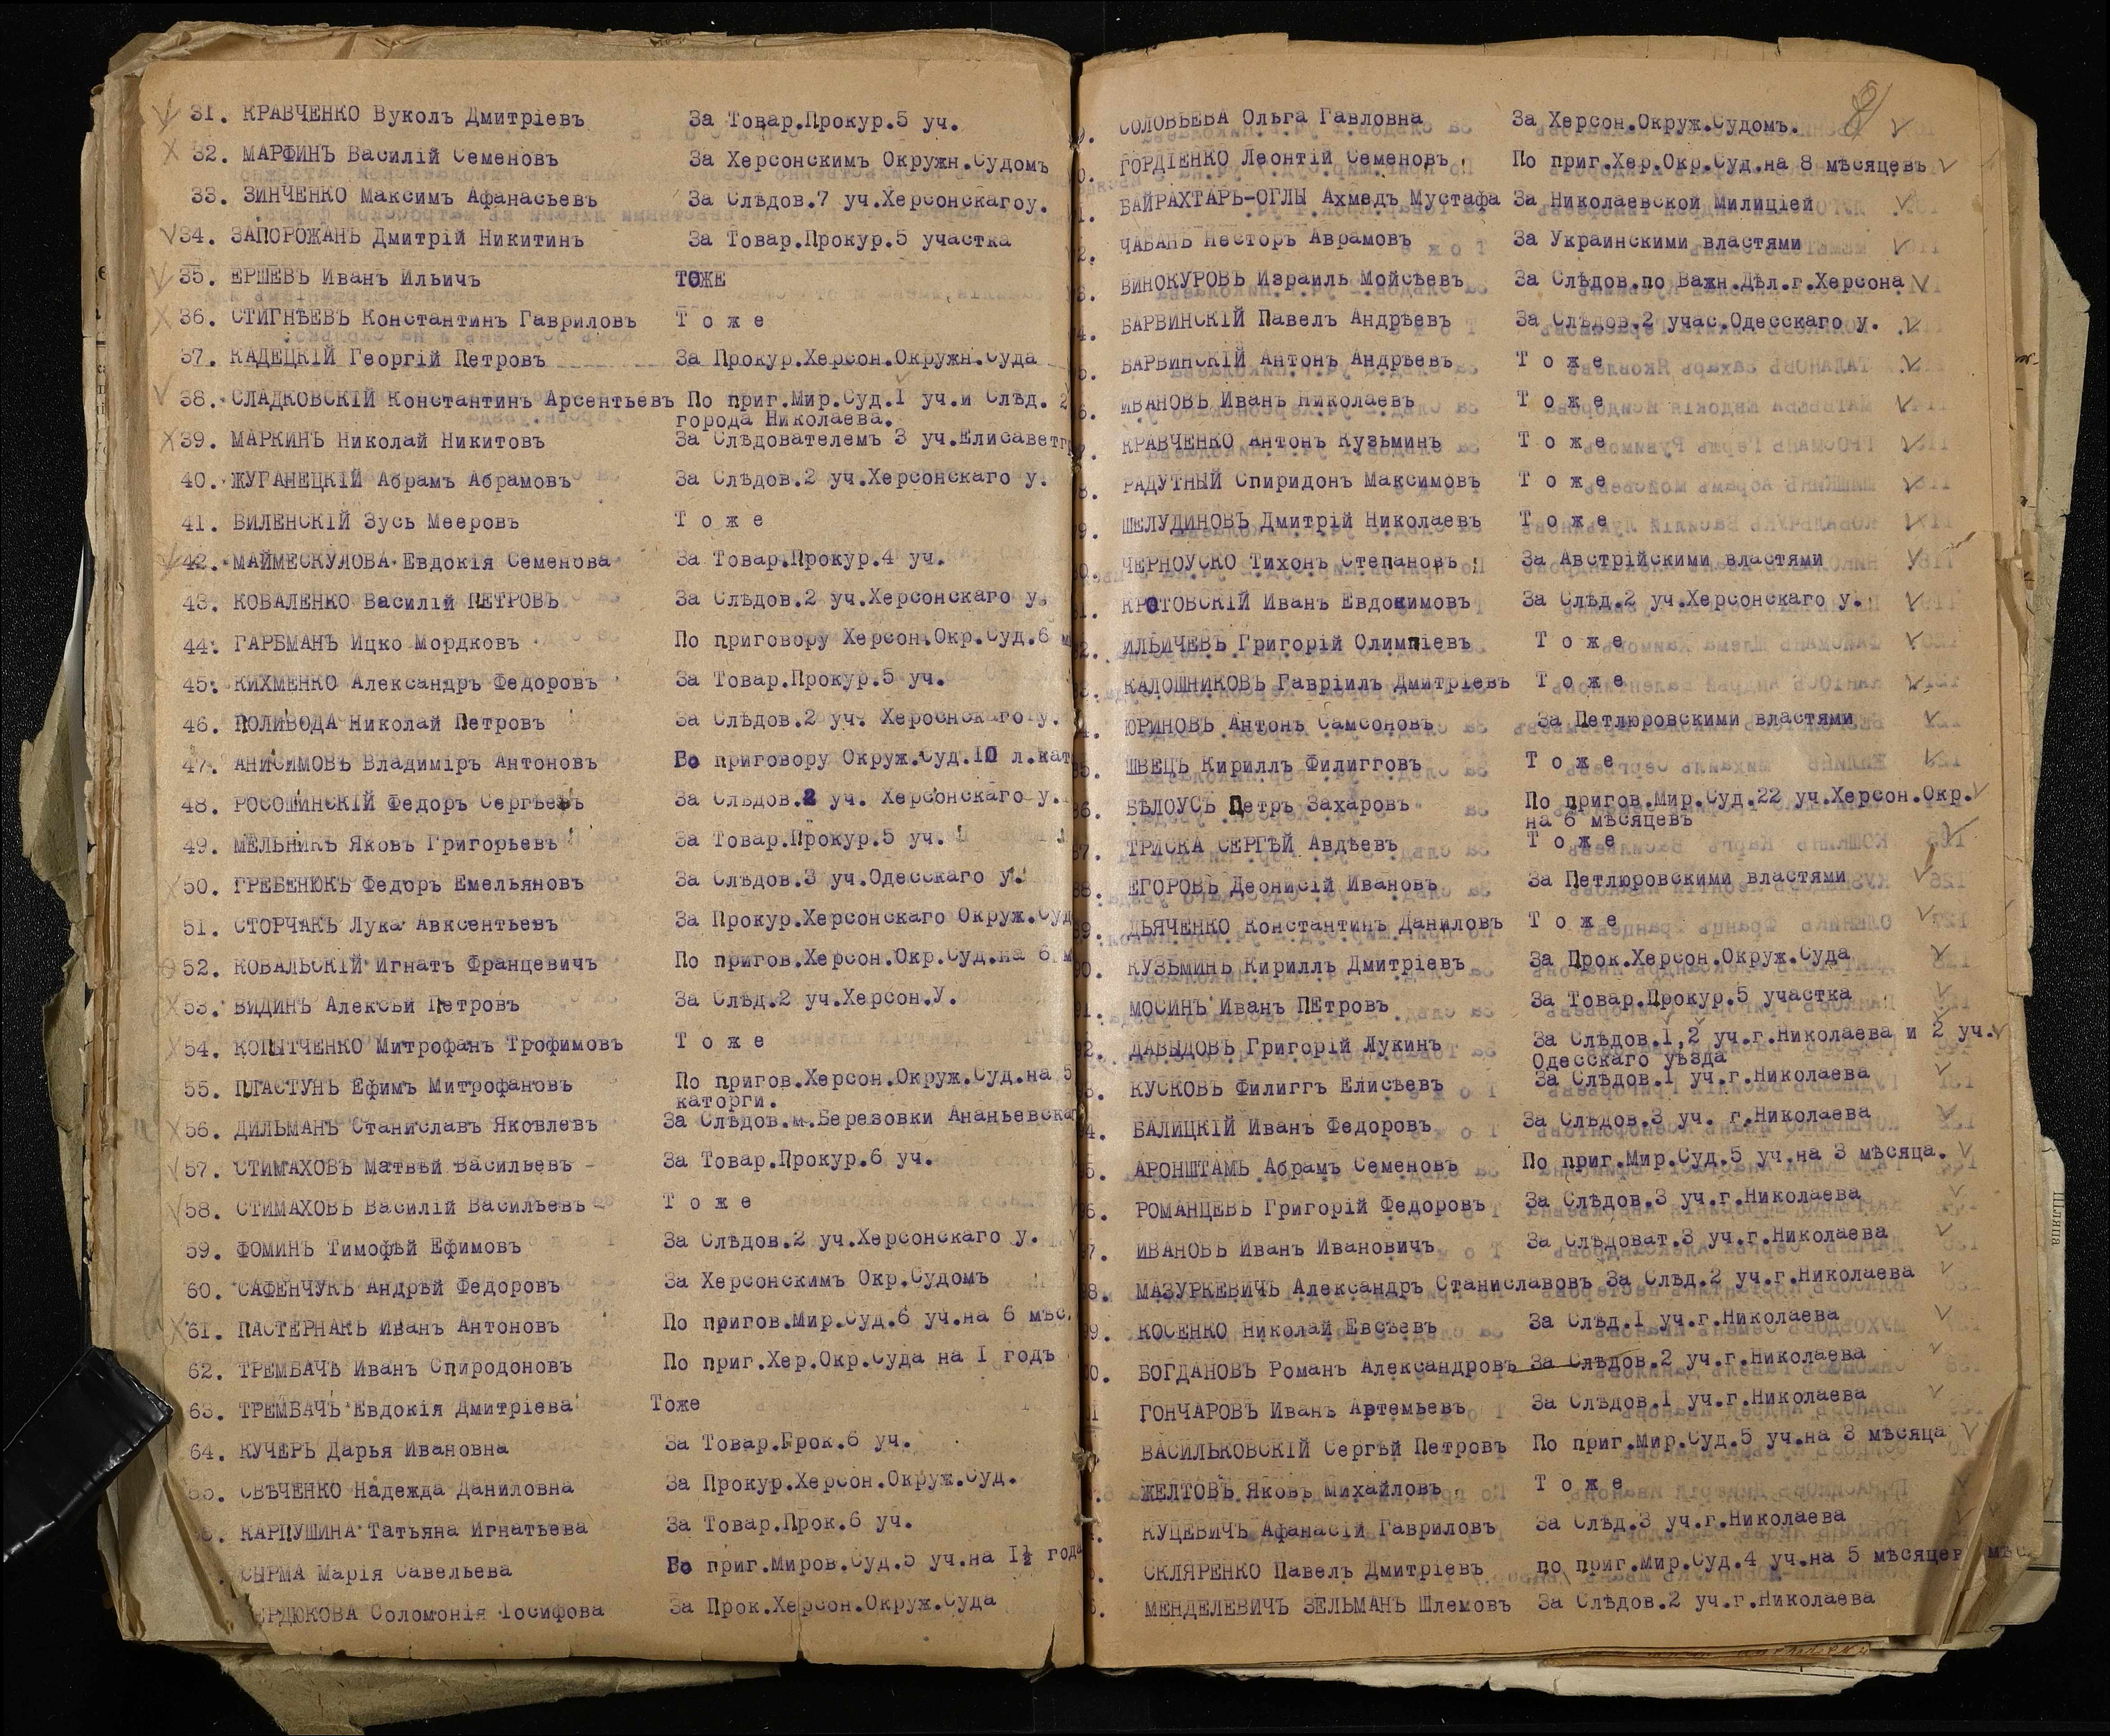 31. КРАВЧЕНКО Вуколъ Дмитріевъ За Товар.Прокур.5 уч.
32. МАРФИНЪ Василій Семеновъ За Херсонскимъ Окружн.Судомъ
33. ЗИНЧЕНКО Максимъ Афанасьевъ За Слѣдов.7 уч.Херсонскагоу.
34. ЗАПОРОЖАНЪ Дмитрій Никитинъ За Товар.Прокур.5 участка
35. ЕРШЕВЪ Иванъ Ильичъ ТОЖЕ
36. СТИГНѢЕВЪ Константинъ Гавриловъ Т о ж е
37. КАДЕЦКІЙ Георгій Петровъ За Прокур.Херсон.Окружн.Суда
38. СЛАДКОВСКІЙ Константинъ Арсентьевъ По приг.Мир.Суд.I уч.и Слѣд. 2
города Николаева.
39. МАРКИНЪ Николай Никитовъ За Слѣдователемъ 3 уч.Елисаветгр
40. ЖУРАНЕЦКІЙ Абрамъ Абрамовъ За Слѣдов.2 уч.Херсонскаго у.
41. ВИЛЕНСКІЙ Зусь Мееровъ Т о ж е
42. МАЙМЕСКУЛОВА Евдокія Семенова За Товар.Прокур.4 уч.
43. КОВАЛЕНКО Василій ПЕТРОВЪ За Слѣдов.2 уч.Херсонскаго у.
44. ГАРБМАНЪ Ицко Мордковъ По приговору Херсон.Окр.Суд.6 м
45. КИХМЕНКО Александръ Федоровъ За Товар.Прокур.5 уч.
46. ПОЛИВОДА Николай Петровъ За Слѣдов.2 уч. Херсонскаго у.
47. АНИСИМОВЪ Владиміръ Антоновъ По приговору Окруж.Суд.IO л.кат
48. РОСОШИНСКІЙ Федоръ Сергѣевъ За Слѣдов.2 уч. Херсонскаго у.
49. МЕЛЬНИКЪ Яковъ Григорьевъ За Товар.Прокур.5 уч.
50. ГРЕБЕНЮКЪ Федоръ Емельяновъ За Слѣдов.3 уч.Одесскаго у.
51. СТОРЧАКЪ Лука Авксентьевъ За Прокур.Херсонскаго Окруж.Суд
52. КОВАЛЬСКІЙ Игнатъ Францевичъ По пригов.Херсон.Окр.Суд.на 6 м
53. ВИДИНЪ Алексѣй Петровъ За Слѣд.2 уч.Херсон.У.
54. КОПЫТЧЕНКО Митрофанъ Трофимовъ Т о ж е
55. ПЛАСТУНЪ Ефимъ Митрофановъ По пригов.Херсон.Окруж.Суд.на 5
каторги.
56. ДИЛЬМАНЪ Станиславъ Яковлевъ За Слѣдов.м.Березовки Ананьевска
57. СТИМАХОВЪ Матвѣй Васильевъ За Товар.Прокур.6 уч.
58. СТИМАХОВЪ Василій Васильевъ Т о ж е
59. ФОМИНЪ Тимофѣй Ефимовъ За Слѣдов.2 уч.Херсонскаго у.
60. САФЕНЧУКЪ Андрѣй Федоровъ За Херсонскимъ Окр.Судомъ
61. ПАСТЕРНАКЪ Иванъ Антоновъ По пригов.Мир.Суд.6 уч.на 6 мѣс.
62. ТРЕМБАЧЪ Иванъ Спиродоновъ По приг.Хер.Окр.Суда на I годъ
63. ТРЕМБАЧЪ Евдокія Дмитріева Тоже
64. КУЧЕРЪ Дарья Ивановна За Товар.Прок.6 уч.
65. СВѢЧЕНКО Надежда Даниловна За Прокур.Херсон.Окруж.Суд.
6. КАРПУШИНА Татьяна Игнатьева За Товар.Прок.6 уч.
СЫРМА Марія Савельева По приг.Миров.Суд.5 уч.на I½ года
ЕРДЮКОВА Соломонія Іосифова За Прок.Херсон.Окруж.Суда
9. СОЛОВЬЕВА Ольга Гавловна За Херсон.Окруж.Судомъ.
0. ГОРДІЕНКО Леонтій Семеновъ По приг.Хер.Окр.Суд.на 8 мѣсяцевъ
1. БАЙРАХТАРЬ-ОГЛЫ Ахмедъ Мустафа За Николаевской Милиціей
2. ЧАБАНЪ Несторъ Аврамовъ За Украинскими властями
3. ВИНОКУРОВЪ Израиль Мойсѣевъ За Слѣдов.по Важн.Дѣл.г.Херсона
4. БАРВИНСКІЙ Павелъ Андрѣевъ За Слѣдов.2 учас.Одесскаго у.
5. БАРВИНСКІЙ Антонъ Андрѣевъ Т о ж е
6. ИВАНОВЪ Иванъ Николаевъ Т о ж е
7. КРАВЧЕНКО Антонъ Кузьминъ Т о ж е
8. РАДУТНЫЙ Спиридонъ Максимовъ Т о ж е
9. ШЕЛУДИНОВЪ Дмитрій Николаевъ Т о ж е
0. ЧЕРНОУСКО Тихонъ Степановъ За Австрійскими властями
1. КРОТОВСКІЙ Иванъ Евдокимовъ За Слѣд.2 уч.Херсонскаго у.
2. ИЛЬИЧЕВЪ Григорій Олимпіевъ Т о ж е
3. КАЛОШНИКОВЪ Гавріилъ Дмитріевъ Т о ж е
4. ЮРИНОВЪ Антонъ Самсоновъ За Петлюровскими властями
5. ШВЕЦЪ Кириллъ Филигговъ Т о ж е
86. БѢЛОУСЪ Петръ Захаровъ По пригов.Мир.Суд.22 уч.Херсон.Окр.
на 6 мѣсяцевъ
87. ТРИСКА СЕРГѢЙ Авдѣевъ Т о ж е
88. ЕГОРОВЪ Деонисій Ивановъ За Петлюровскими властями
89. ДЬЯЧЕНКО Константинъ Даниловъ Т о ж е
90. КУЗЬМИНЪ Кириллъ Дмитріевъ За Прок.Херсон.Окруж.Суда
91. МОСИНЪ Иванъ ПЕтровъ За Товар.Прокур.5 участка
92. ДАВЫДОВЪ Григорій Лукинъ За Слѣдов.I,2 уч.г.Николаева и 2 уч.
Одесскаго уѣзда
3. КУСКОВЪ Филиггъ Елисѣевъ За Слѣдов.I уч.г.Николаева
4. БАЛИЦКІЙ Иванъ Федоровъ За Слѣдов.3 уч. г.Николаева
5. АРОНШТАМЪ Абрамъ Семеновъ По приг.Мир.Суд.5 уч.на 3 мѣсяца.
6. РОМАНЦЕВЪ Григорій Федоровъ За Слѣдов.3 уч.г.Николаева
7. ИВАНОВЪ Иванъ Ивановичъ За Слѣдоват.3 уч.г.Николаева
8. МАЗУРКЕВИЧЪ Александръ Станиславовъ За Слѣд.2 уч.г.Николаева
99. КОСЕНКО Николай Евсѣевъ За Слѣд.I уч.г.Николаева
00. БОГДАНОВЪ Романъ Александровъ За Слѣдов.2 уч.г.Николаева
1 ГОНЧАРОВЪ Иванъ Артемьевъ За Слѣдов.I уч.г.Николаева
ВАСИЛЬКОВСКІЙ Сергѣй Петровъ По приг.Мир.Суд.5 уч.на 3 мѣсяца
ЖЕЛТОВЪ Яковъ Михайловъ Т о ж е
КУЦЕВИЧЪ Афанасій Гавриловъ За Слѣд.3 уч.г.Николаева
СКЛЯРЕНКО Павелъ Дмитріевъ по приг.Мир.Суд.4 уч.на 5 мѣсяцев
МЕНДЕЛЕВИЧЪ ЗЕЛЬМАНЪ Шлемовъ За Слѣдов.2 уч.г.Николаева
Шляпа